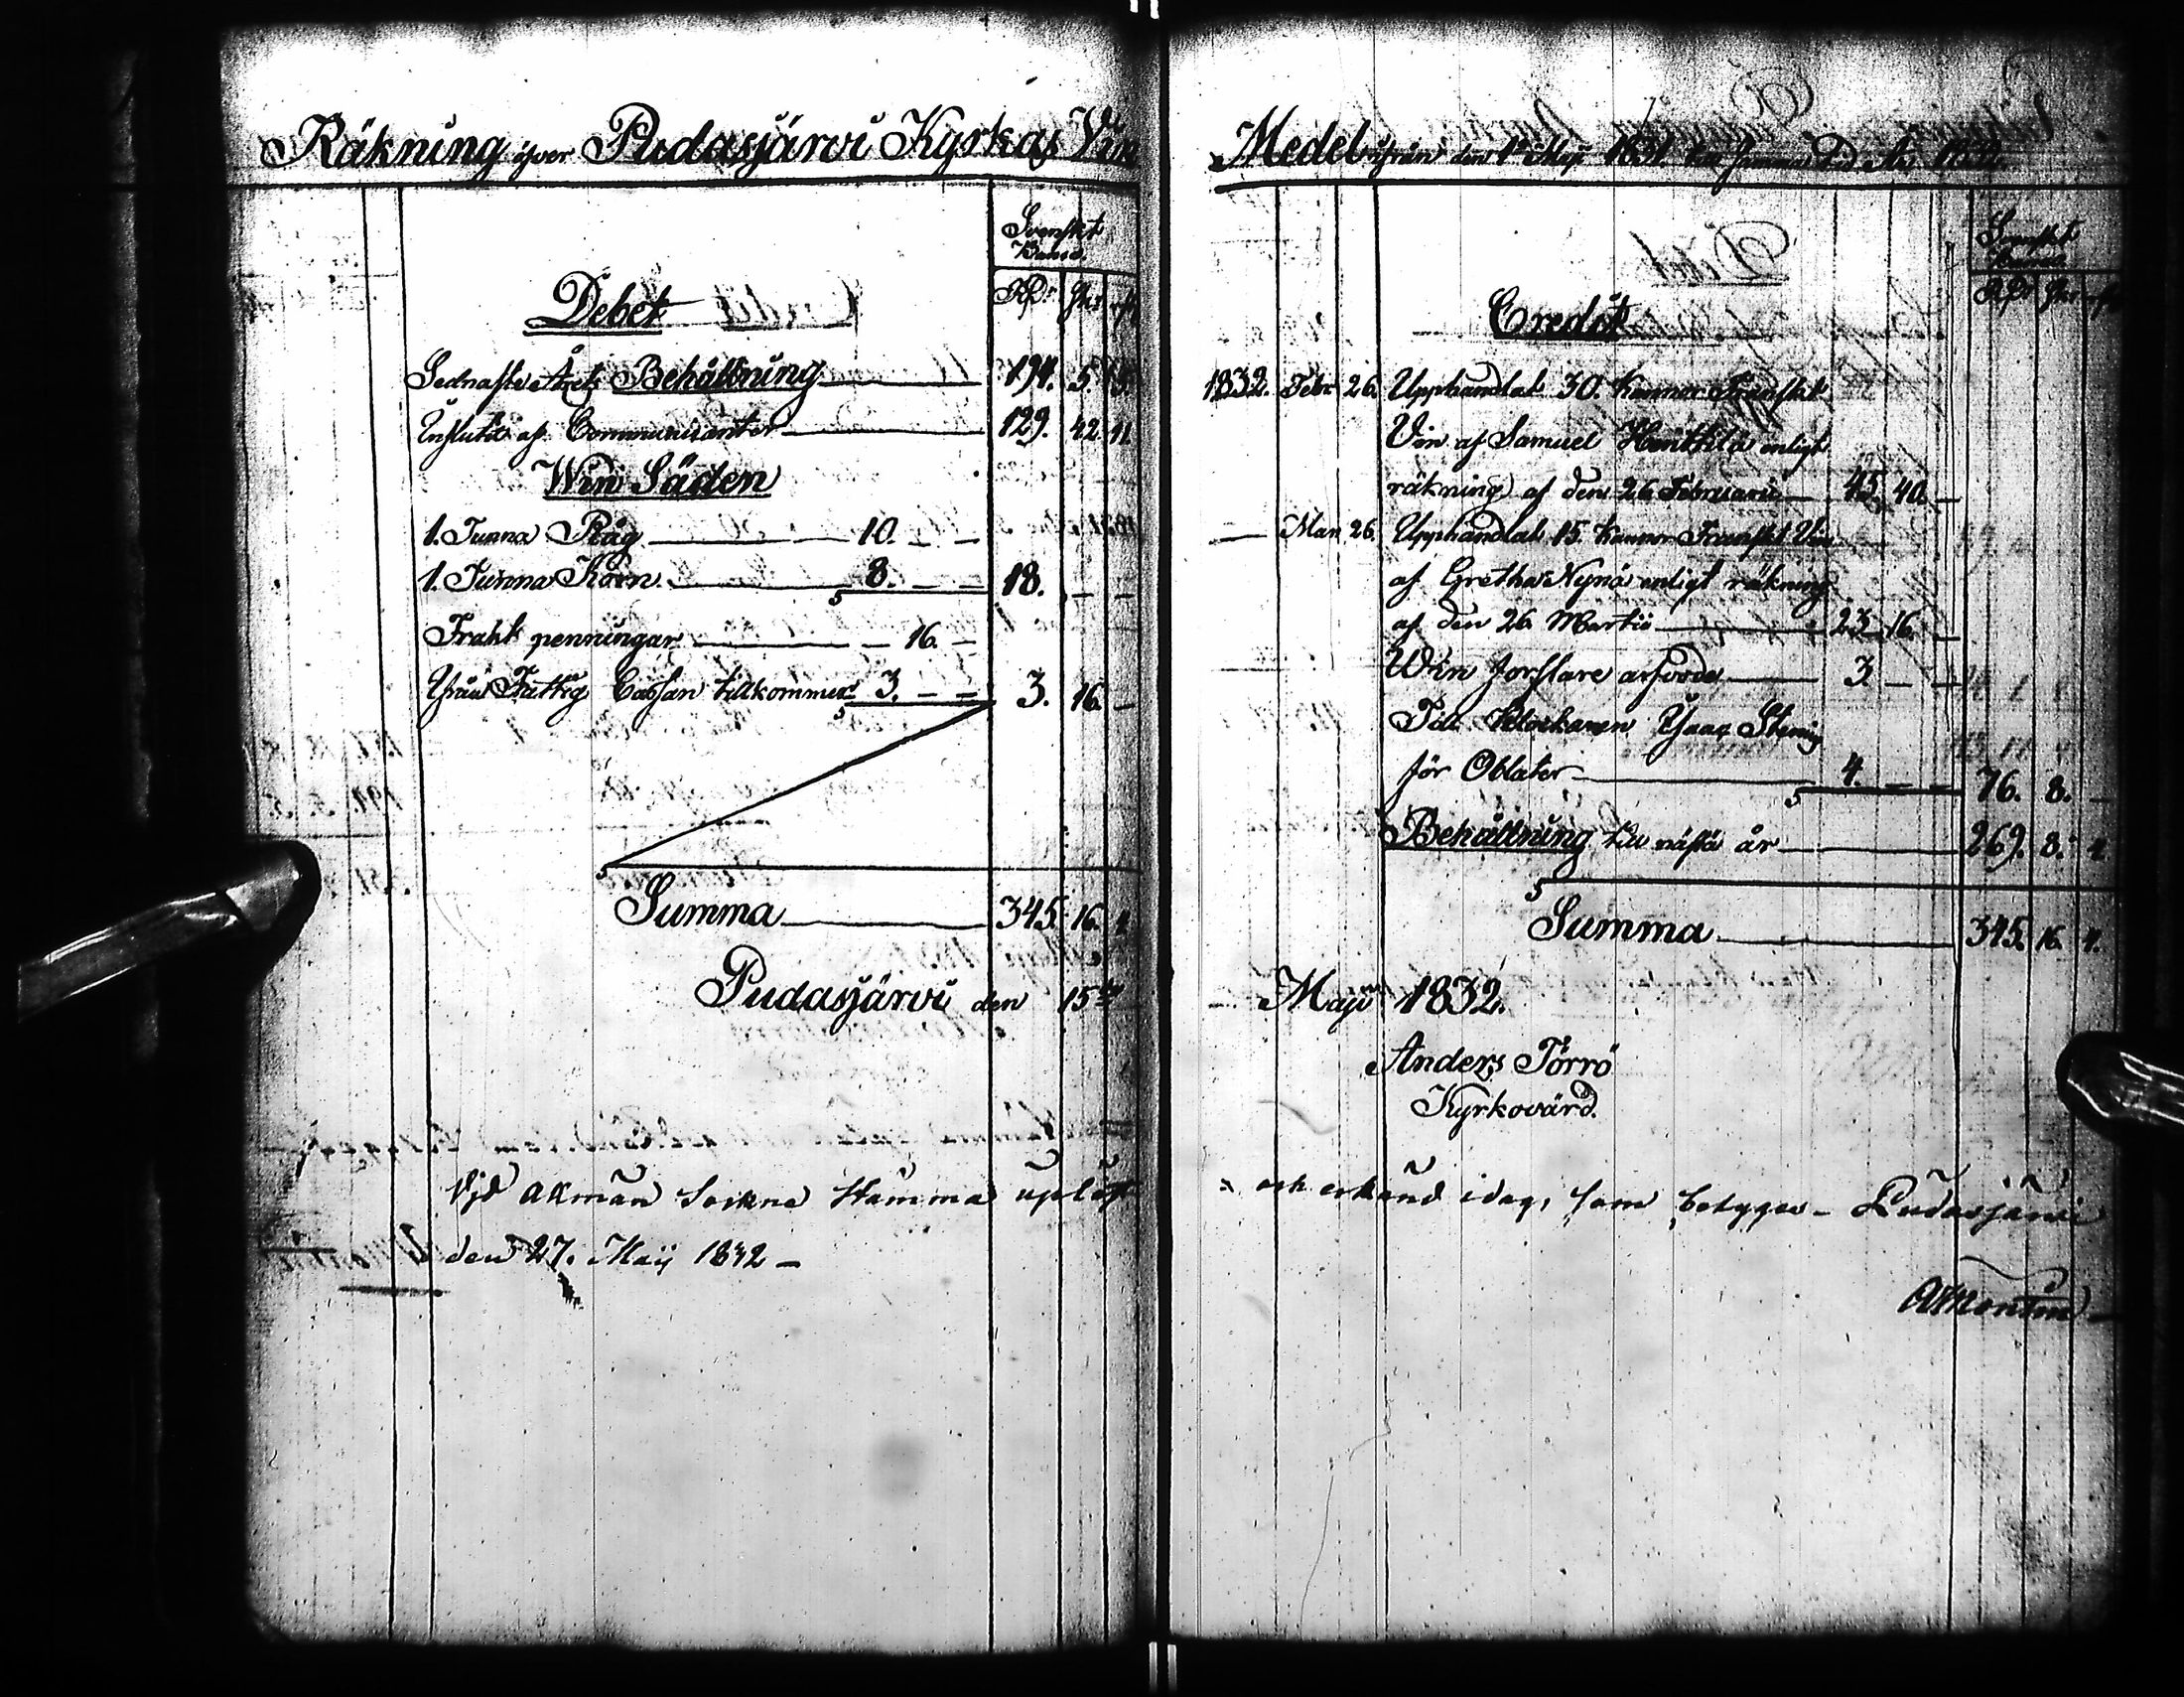 Räkning öfver Pudasjärvi Kyrkas Vin
Svenskt
Debet
Rdr Sk
Sednaste Årets Behållning 194. 5. 5.
Influtit af Communicanter 129. 42. 11.
Win Säden
1. Tunna Råg 10. — —
1. Tunna Korn 8. — — 18. — —
Frakt penningar — 16. —
Ifrån Fattig Cassan tillkommer 3. — — 3. 16. —
Summa 345. 16. 4.
Pudasjärvi den 15de
Vid allmän Sockne Stämma upläst
den 27. Maij 1832 —
Medel ifrån den 1a Maji 1831. till samma tid År 1832.
Svenskt
Rdr Sk
Credit
1832. Febr. 26. Upphandlat 30. Kannor Franskt
Vin af Samuel Henttilä enligt
räkning af den 26 Februarii 45. 40. —
— Mar. 26. Upphandlat 15. Kannor Franskt Vin
af Gretha Nynäs enligt räkning
af den 26 Martii 23. 16. —
Win forslare arfvode 3. — —
Till Klockaren Isaac Stenig
för Oblater 4. — — 76. 8. —
Behållning till nästa år 269. 8. 4.
Summa 345. 16. 4.
Maji 1832.
Anders Törrö
Kyrkovärd.
och erkänd idag, som betygas — Pudasjärvi